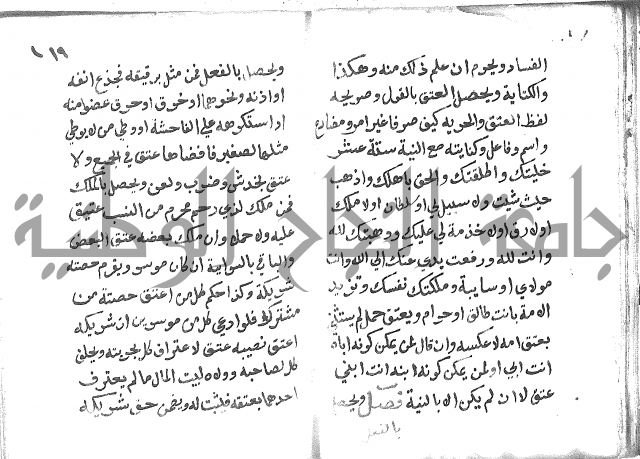 الفساد ويحرم ان علم ذلك منه وهكذا
والكتابة ويحصل العتق بالقول وصريحه
لفظ العتق والحرية كيف صرفا غير امر ومضارع
واسم وفاعل وكنايته مع النية ستة عشر
خليتك واطلقتك والحق باهلك واذهب
حيث شئت ولا سبيل لي او سلطان اولا ملك
او لا رق اولا خدمة لي عليك ووهبتك لله
وانت لله ورفعت يدي عنك الى الله وانت
مولاي او سايبة وملكتك نفسك وتزيد
الامة بانت طالق او حرام ويعتق حمل لم يستثن
بعتق امه لا عكسه وان قال لمن يمكن كونه اباه
انت ابي او لمن يمكن كونه ابنه انت ابني
عتق لا ان لم يكن الا بالنية فصل ويحصل
١٩
ويحصل بالفعل فمن مثل برقيقه فجذع انفه
او اذنه ونحوهما او خرق او حرق عضوا منه
او استكرهه على الفاحشة او وطي من لا يوطي
مثلها لصغر فافضاها عتق في الجميع ولا
عتق بخدش وضرب ولعن ويحصل بالملك
فمن ملك لذي رحم محرم من النسب عتق
عليه ولو حملا وان ملك بعضه عتق البعض
والباقي بالسراية ان كان موسرا ويغرم حصته
شريكه وكذا حكم كل من اعتق حصته من
مشترك فلو ادعى كل من موسرين ان شريكه
اعتق نصيبه عتق لاعتراف كل بحريته ويحلف
كل لصاحبه وولاه لبيت المال ما لم يعترف
احدهما بعتقه فيثبت له ويضمن حق شريكه
جامعة الملك